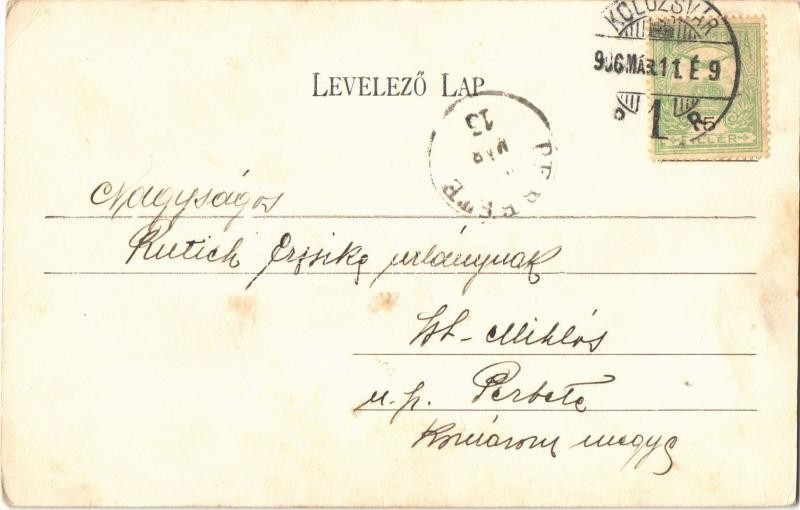 KOLOZSVÁR
906 MÁR. 11. É 9
1
5
FILLÉR
LEVELEZŐ LAP
PERBETE
MAR
13
Nagyságos
Rutich Erzsike urlánynak
Szt-Miklós
u. p. Perbete
Komárom megye